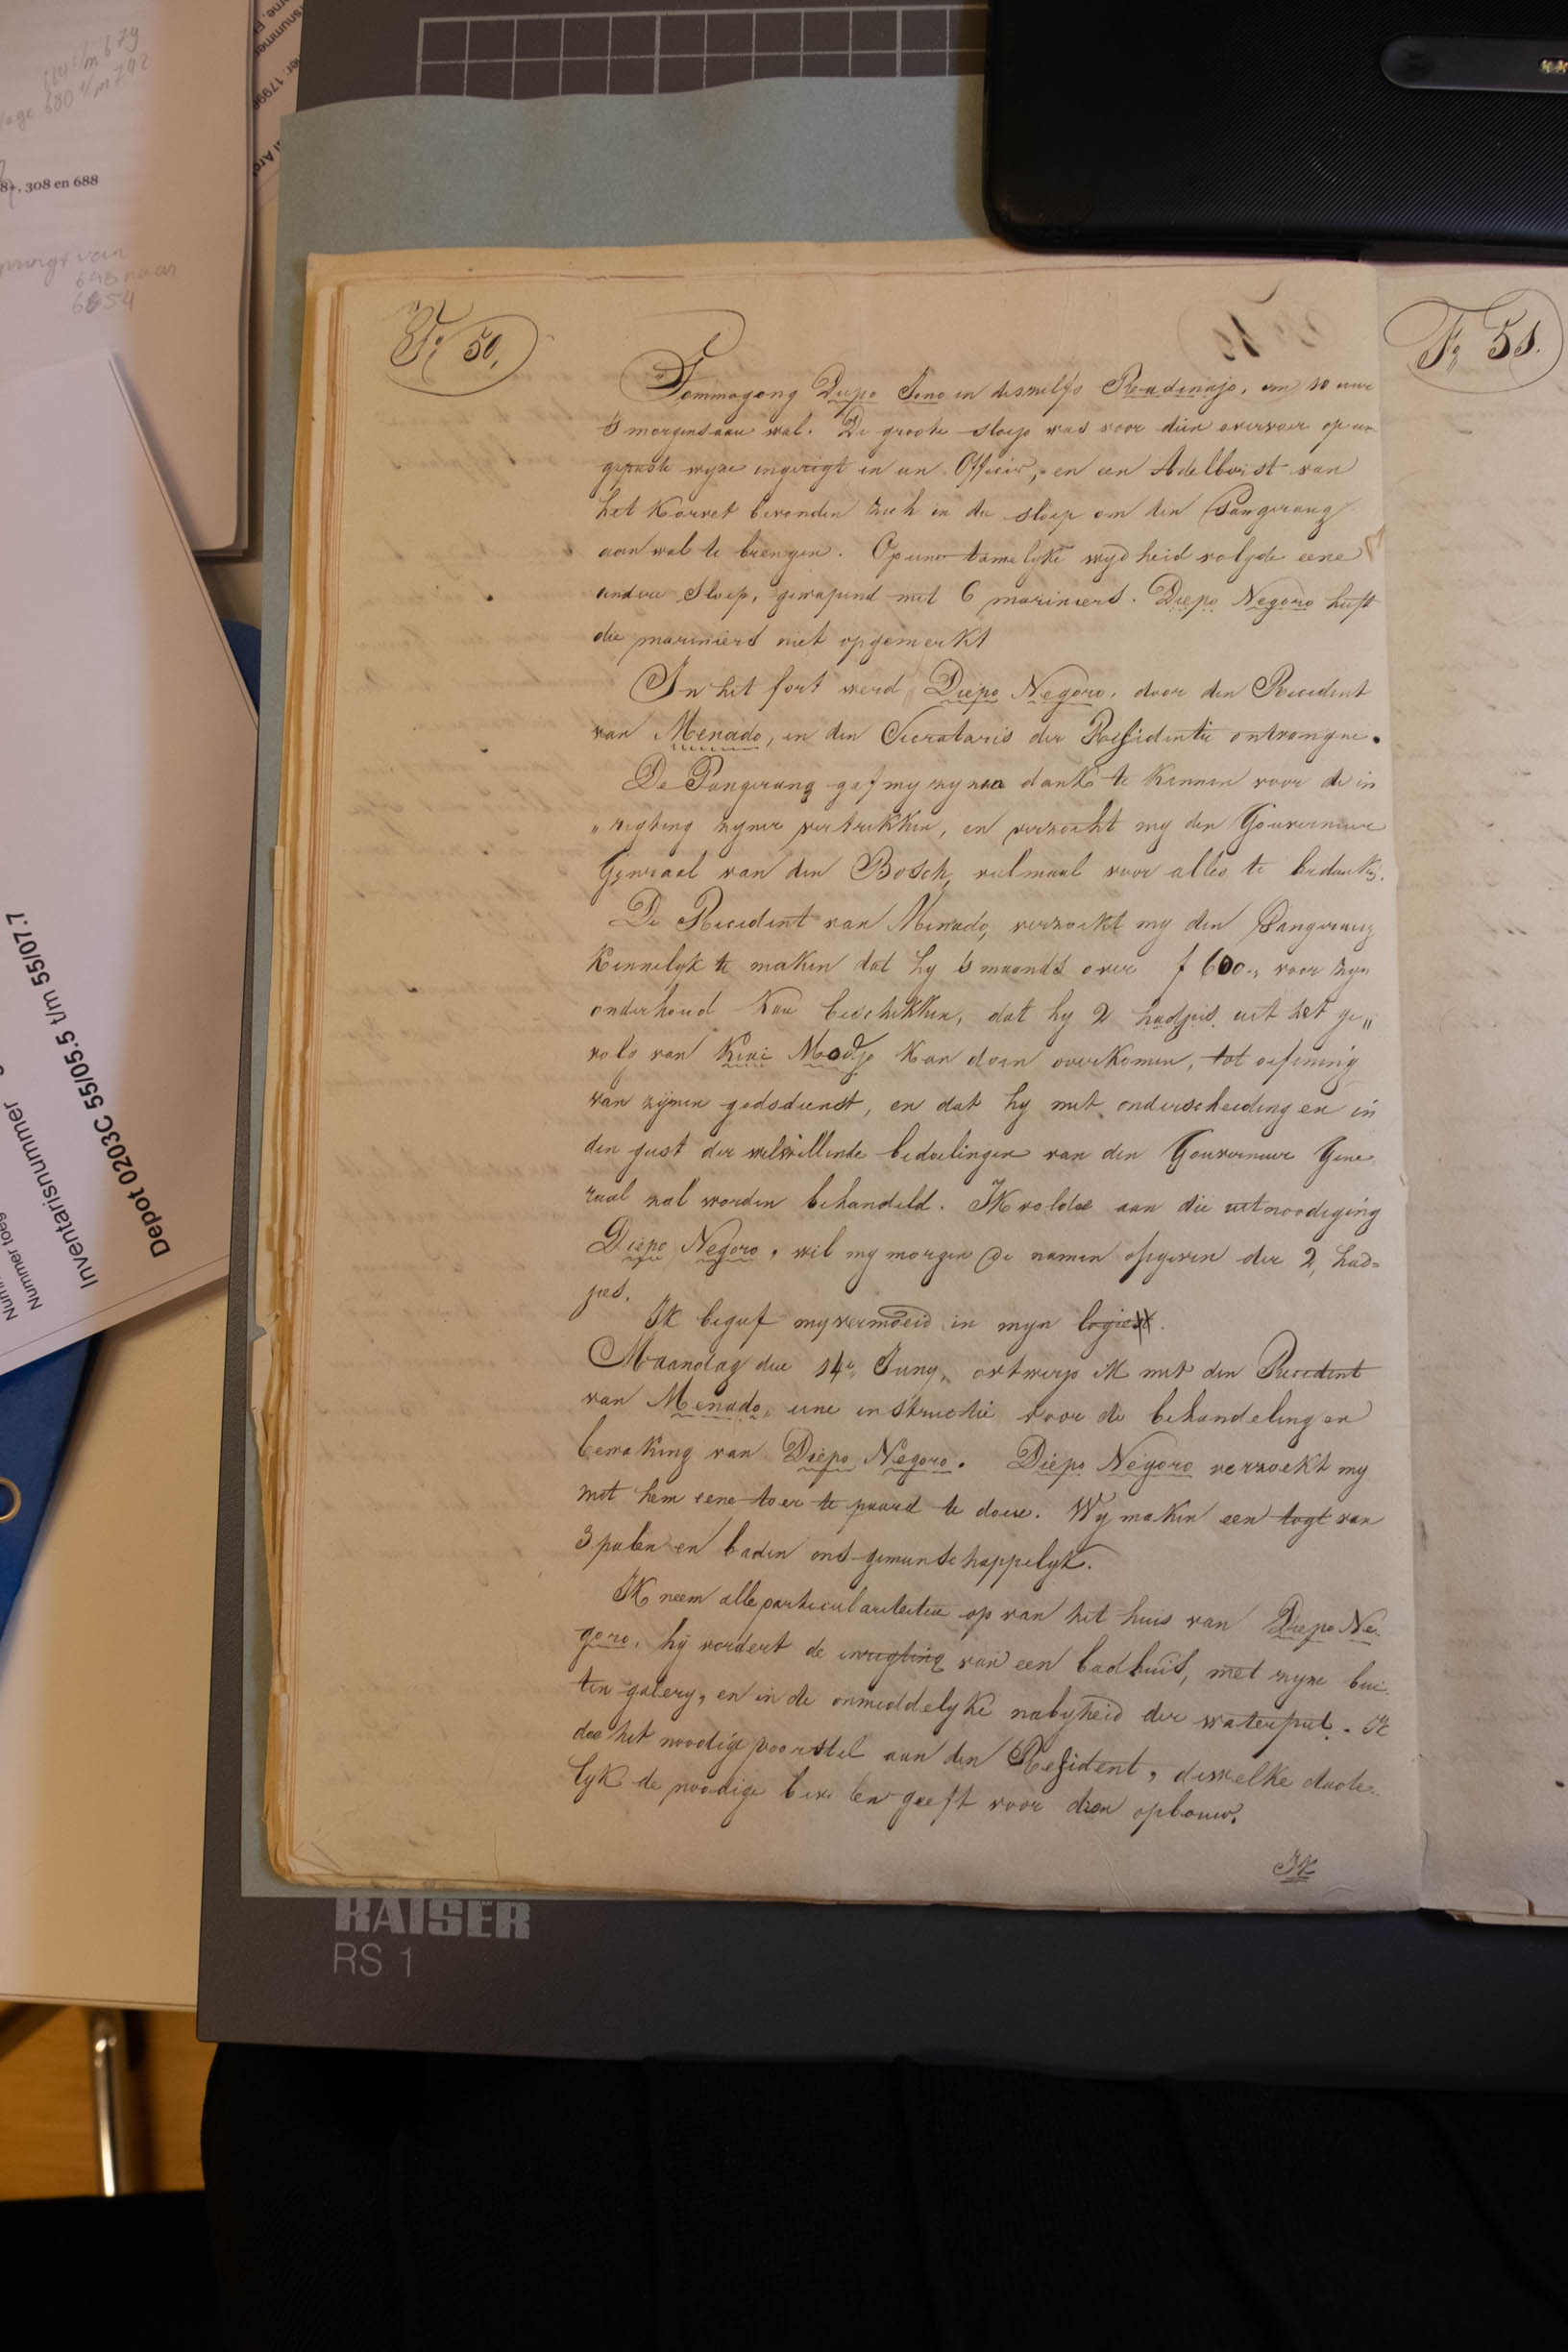 Fo 50.
Tommogong Diepo Sono en deszelfs Raadenajo, om 10 uur
's morgens aan wal. De groote sloep was voor dien overvoer op een
gepaste wyze ingerigt en een Officier, en een Adelborst van
het Korvet bevonden zich in de sloep om den Pangerang
aan wal te brengen. Op eene tamelyke wydheid volgde eene
andere Sloep, gewapend met 6 mariniers. Diepo Negoro heeft
die mariniers niet opgemerkt
In het fort werd Diepo Negoro, door den Resident
van Menado, en den Secretaris der Residentie ontvangen.
De Pangerang gaf my zynen dank te kennen voor de in
„rigting zyner vertrekken, en verzocht my den Gouverneur
Generaal van den Bosch, velmaal voor alles te bedanken.
De Resident van Menado, verzoekt my den Pangerang
kennelyk te maken dat hy 's maands over f 600., voor zyn
onderhoud kan beschikken, dat hy 2 hadjies uit het ge„
volg van Kiai Modjo kan doen overkomen, tot oefening
van zijnen godsdienst, en dat hy met onderscheiding en in
den geest der welwillende bedoelingen van den Gouverneur Gene
raal zal worden behandeld. Ik voldoe aan die uitnoodiging
Diepo Negoro, wil my morgen de namen opgeven der 2, had=
jies.
Ik begaf my vermoeid in myn logies.
Maandag den 14e Juny, ontwerp ik met den Resident
van Menado, eene instructie voor de behandeling en
bewaking van Diepo Negoro. Diepo Negoro verzoekt my
met hem eene toer te paard te doen. Wy maken een togt van
3 palen en baden ons gemeenschappelyk.
Ik neem alle particulariteiten op van het huis van Diepo Ne
goro. hij vordert de inrigting van een badhuis, met zyne bui
ten galery, en in de onmiddelyke nabyheid der waterput. Ik
doe het noodige voorstel aan den Resident, dewelke dade
lyk de noodige bevelen geeft voor dien opbouw.
Ik
Fo 51.
8+, 308 en 688
648 naar
6654
Inventarisnummer
Depot 0203C 55/05.5 t/m 55/07.7
KAISER
RS 1